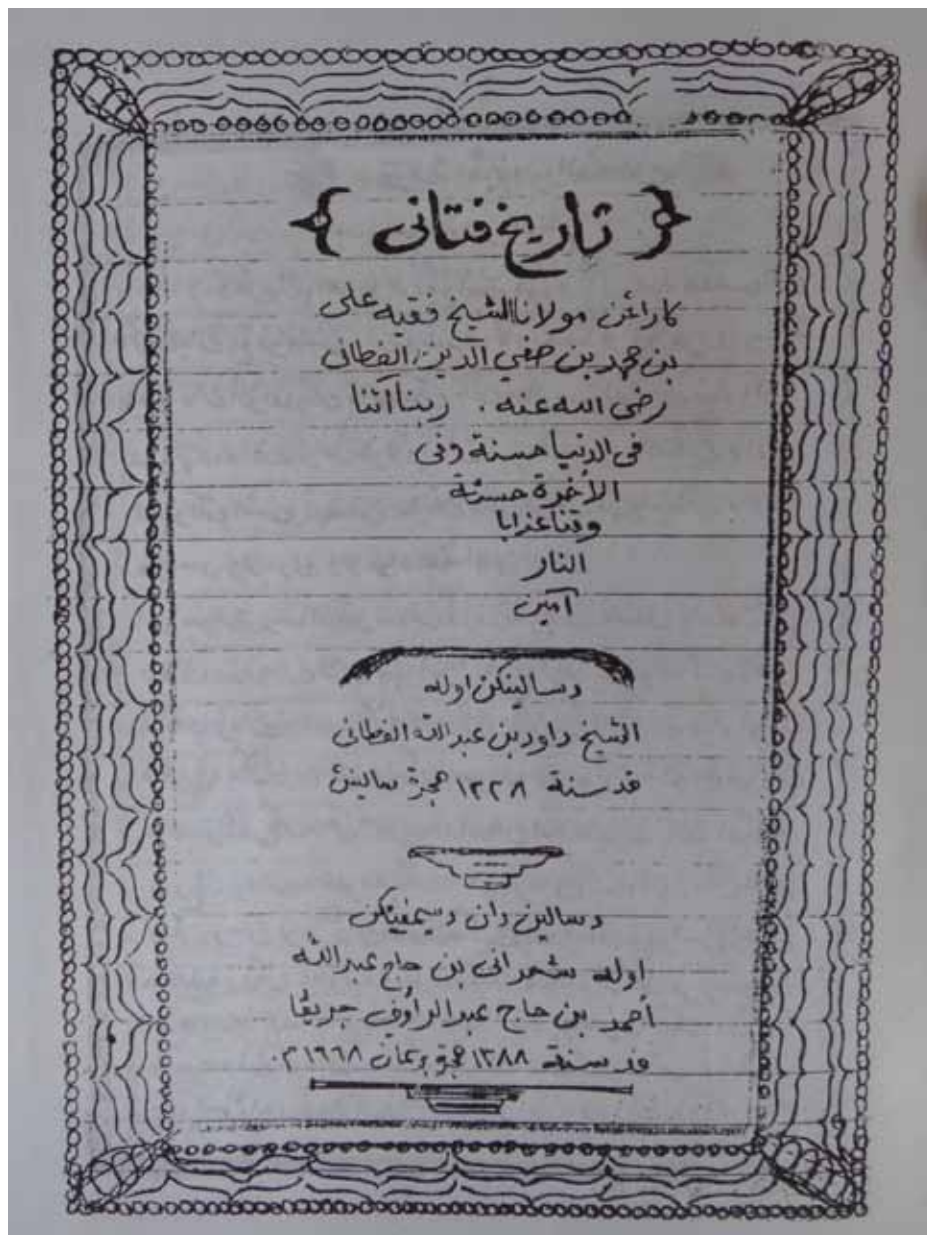 ﴿ تاريخ فتاني ﴾
كارڠن مولانا الشيخ فقيه على
بن محمد بن صفي الدين الفطاني
رضى الله عنه . ربنا اتنا
فى الدنيا حسنة وفى
الاخرة حسنة
وقنا عذابا
النار
آمين
دسالينكن اوله
الشيخ داود بن عبد الله الفطانى
قد سنة ١٢٢٨ هجرة سالينن
دسالين دان دسيمڤينكن
اوله شعرانى بن حاج عبدالله
أحمد بن حاج عبد الرأوف جريڠا
قد سنة ١٣٨٨ هجرة برسمان ١٩٦٨ م.